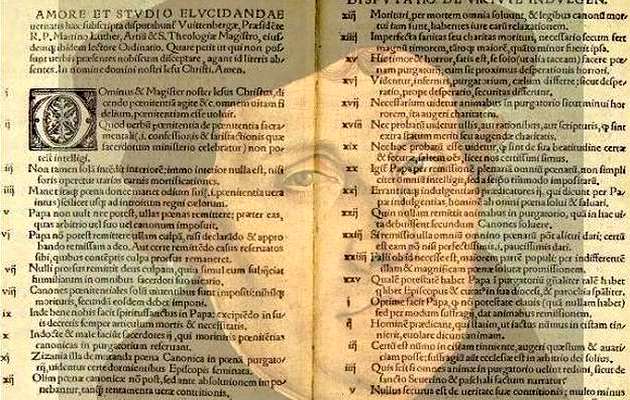 AMORE ET STVDIO ELVCIDANDAE
ueritatis hæc subscripta disputabuntur Vuittenbergæ, Præsidēte
R. P. Martino Luther, Artiū & S. Theologiæ Magistro, eius-
dem ibidem lectore Ordinario. Quare petit ut qui non pos-
sunt uerbis præsentes nobiscum disceptare, agant id literis ab-
sentes. In nomine domini nostri Iesu Christi, Amen.
i DOminus & Magister noster Iesus Christus, di-
cendo pœnitentiā agite &c. omnem uitam fi
delium, pœnitentiam esse uoluit.
ij Quod uerbū pœnitentiæ de pœnitentia sacra
mentali (.i. confessionis & satisfactionis quæ
sacerdotum ministerio celebratur) non po-
test intelligi.
iij Non tamen solā intēdit interiorē; immo interior nulla est, nisi
foris operetur uarias carnis mortificationes.
iiij Manet itaq; pœna donec manet odium sui (.i. pœnitentia uera
intus) scilicet usq; ad introitum regni cælorum.
v Papa non uult nec potest, ullas pœnas remittere; præter eas,
quas arbitrio uel suo uel canonum imposuit.
vj Papa nō potest remittere ullam culpā, nisi declarādo & appro
bando remissam a deo. Aut certe remittēdo casus reseruatos
sibi, quibus contēptis culpa prorsus remaneret.
vij Nulli prorsus remittit deus culpam, quin simul eum subijciat
humiliatum in omnibus sacerdoti suo uicario.
viij Canones pœnitentiales solū uiuentibus sunt impositi; nihilq;
morituris, secundū eosdem debet imponi.
ix Inde bene nobis facit spiritussanctus in Papa; excipiēdo in su-
is decretis semper articulum mortis & necessitatis.
x Indocte & male faciūt sacerdotes ij, qui morituris pœnitētias
canonicas in purgatorium reseruant.
xj Zizania illa de mutanda pœna Canonica in pœnā purgato-
rij, uidentur certe dormientibus Episcopis seminata.
xij Olim pœnæ canonicæ nō post, sed ante absolutionem im po-
nebantur, tanquam tentamenta ueræ contritionis.
DISPVTATIO DE VIRTVTE INDVLGEN.
xiij Morituri, per mortem omnia soluunt, & legibus canonū mor-
tui iam sunt, habentes iure earū relaxationem.
xiiij Imperfecta sanitas seu charitas morituri, necessario secum fert
magnū timorem, tātoq; maiorē, quāto minor fuerit ipsa.
xv Hic timor & horror, satis est, se solo (ut alia taceam) facere pœ
nam purgatorij, cum sit proximus desperationis horrori.
xvj Videntur, infernus, purgatoriū, cælum differre; sicut despe-
ratio, prope desperatio, securitas differunt.
xvij Necessarium uidetur animabus in purgatorio sicut minui hor
rorem, ita augeri charitatem.
xviij Nec probatū uidetur ullis, aut rationibus, aut scripturis, q̄ sint
extra statum meriti seu augendæ charitatis.
xix Nec hoc probatū esse uidetur, q̄ sint de sua beatitudine certæ
& securæ saltem oēs, licet nos certissimi simus.
xx Igit̄ Papa per remissionē plenariā omniū pœnarū, non simpli
citer omniū intelligit, sed a seipso tātūmodo impositarū.
xxj Errant itaq; indulgentiarū prædicatores ij, qui dicunt per Pa-
pæ indulgentias, hominē ab omni pœna solui & saluari.
xxij Quin nullam remittit animabus in purgatorio, quā in hac ui-
ta debuissent secundum Canones soluere.
xxiij Si remissio ulla omniū omnino pœnarū pōt alicui dari; certū
est eam nō nisi perfectissimis, .i. paucissimis dari.
xxiiij Falli ob id necesse est, maiorem partē populi; per indifferentē
illam & magnificam pœnæ solutæ promissionem.
xxv Qualē potestatē habet Papa ī purgatoriū gn̄aliter talē habet
q̄libet Episcopus & curat⁹ in sua diocesi, & parochia spāliter.
i Optime facit Papa, q̄ nō potestate clauis (quā nullam habet)
sed per modum suffragij, dat animabus remissionem.
ij Hominē prædicant, qui statim, ut iactus nūmus in cistam tin-
nierit, euolare dicunt animam.
iij Certū est nūmo in cistam tinniente, augeri quæstum & auari-
ciam posse; suffragiū aūt ecclesiæ est in arbitrio dei solius.
iiij Quis scit si omnes animæ in purgatorio uelint redimi, sicut de
sancto Seuerino & paschali factum narratur.
v Nullus securus est de ueritate suæ contritionis; multominus